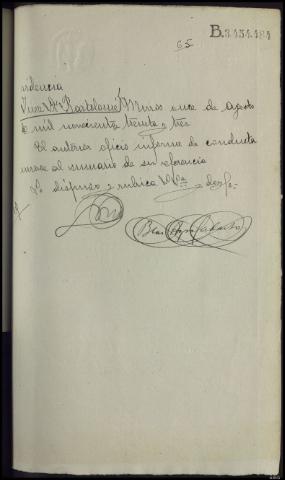 B.3.454.484
65
videncia
Juez Sr Bartolomé once de Agosto
de mil novecientos treinta y tres
El anterior oficio informe de conducta
unase al sumario de su referencia
Lo dispuso y rubrica S Sª doy fe.